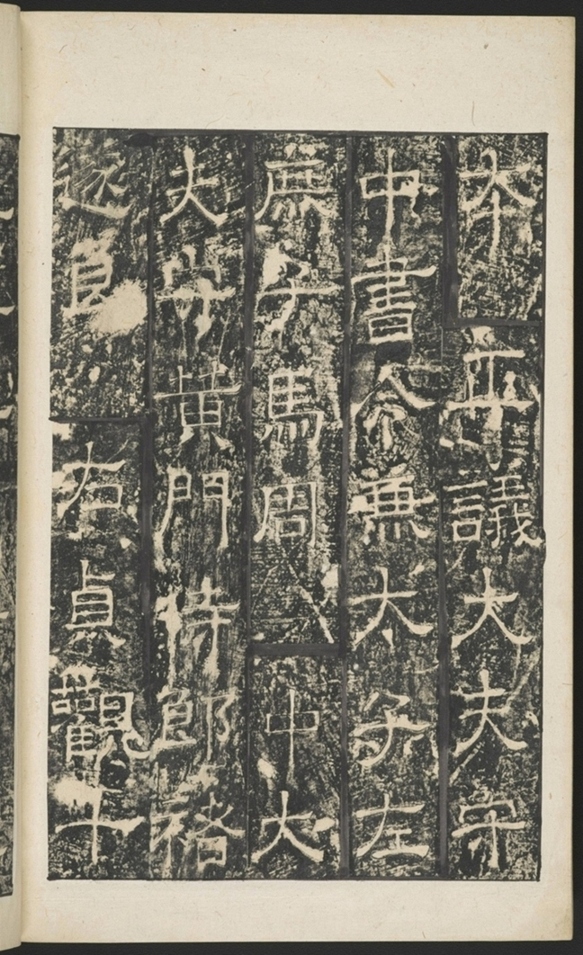 本 正議大夫守
中書令兼大子左
庶子馬周 中大
夫守黄門侍郎褚
遂良 右貞觀十